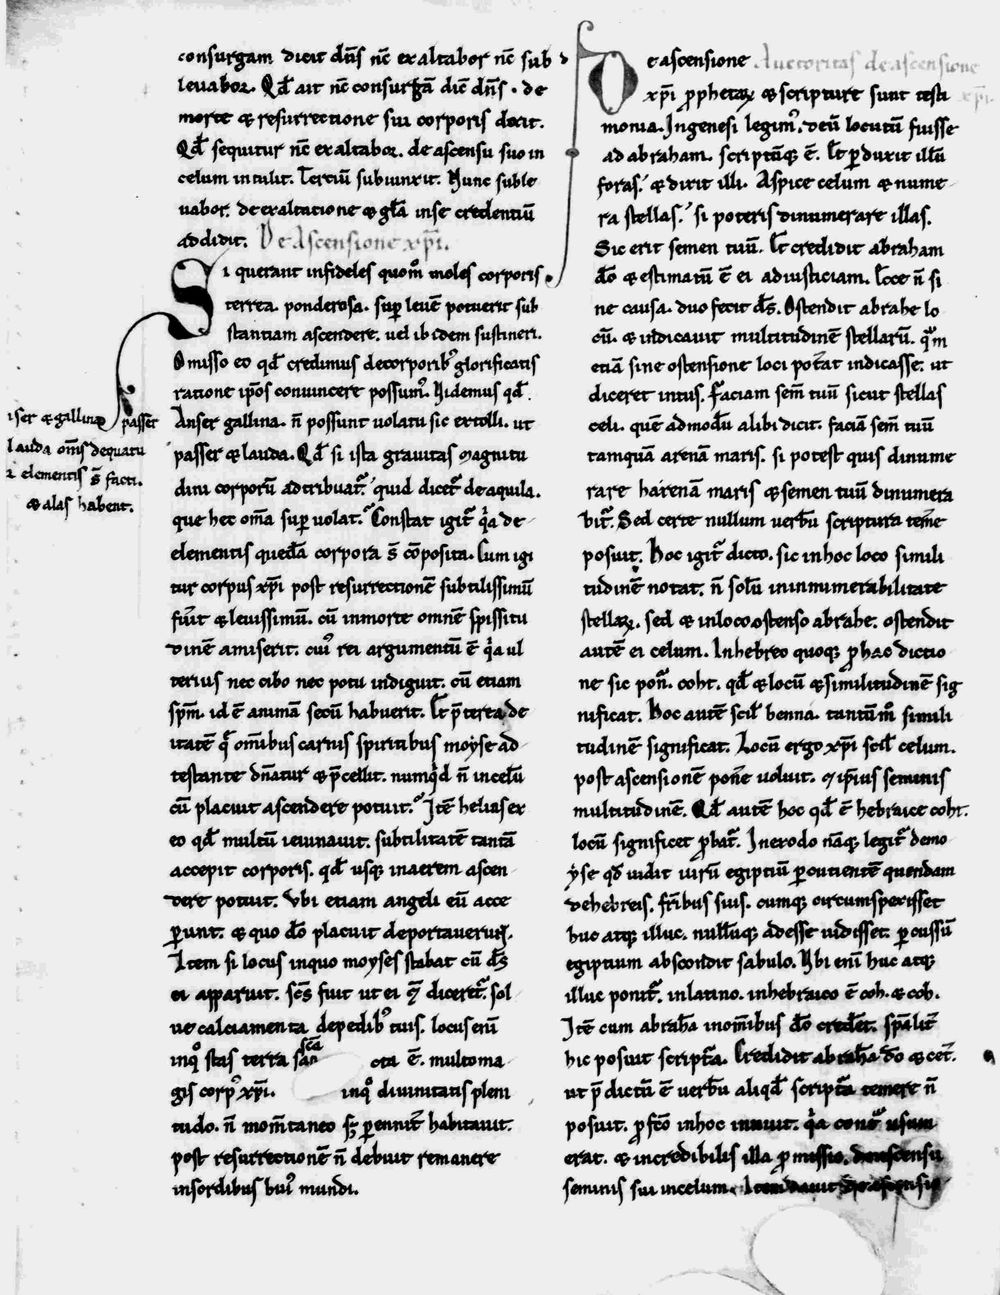 consurgam dicit dn̄s nc̄ exaltabor nc̄ sub
levabor. Qd̄ ait nc̄ consurgā dic̄ dn̄s. de
morte & resurrectione sui corporis dixit.
Qd̄ sequitur nc̄ exaltabor. de ascensu suo in
celum intulit. Terciū subiunxit. Nunc suble
vabor. de exaltatione & gl̄a in se credentiū
addidit. De Ascensione xp̄i.
Si querant infideles quom̄ moles corporis
terrea. ponderosa. sup̱ levē potuerit sub
stantiam ascendere. vel ibidem sustineri.
Omisso eo qd̄ credimus de corporib; glorificatis
ratione ip̄os convincere possum;. Videmus qd̄
Anser gallina. n̄ possunt volatu sic extolli. ut
passer & lauda. Qd̄ si ista gravitas magnitu
dini corporū adtribuat᷑. quid dicet᷑ de aquila.
que hec om̄a sup̱ volat. Constat igit᷑ q̇a de
elementis quedā corpora s̄ cōposita. Cum igi
tur corpus xp̄i post resurrectionē subtilissimū
fuit & levissimū. cū in morte omnē spissitu
dinē amiserit. cui; rei argumentū ē q̇a ul
terius nec cibo nec potu indiguit. cū etiam
sp̄m. id ē animā secū habuerit. Et p̄terea de
itatē q̄ om̄ibus carnis spiritibus moyse ad
testante dn̄atur & p̄cellit. numq̇d n̄ in celū
cū placuit ascendere potuit. Itē helias ex
eo qd̄ multū ieiunavit. subtilitatē tantā
accepit corporis. qd̄ usq; in aerem ascen
dere potuit. Vbi etiam angeli eū acce
p̱unt. & quo dō placuit deportaverunt.
Item si locus in quo moyses stabat cū ds̄
ei apparuit. sc̄s fuit ut ei q̄ diceret᷑. sol
ve calciamenta de pedib; tuis. locus eni
in q̊ stas terra sc̄a ē. multo ma
gis corp; xp̄i. in q̊ divinitatis pleni
tudo. n̄ mom̄taneo s; p̱ennit᷑ habitavit.
post resurrectionē n̄ debuit remanere
in sordibus hui; mundi.
&gallina passer
lauda om̄s de quatu
elementis s̄ facti.
& alas habent.
De ascensione Auctoritas de ascensione
xp̄i p̱phetaꝝ & scripture sunt testi xp̄i.
monia. In genesi legim;. deū locutū fuisse
ad abraham. scriptūq; ē. Et p̱duxit illū
foras. & dixit illi. Aspice celum & nume
ra stellas. si poteris dinumerare illas.
Sic erit semen tuū. Et credidit abraham
dō & estimatū ē ei ad iusticiam. Ecce n̄ si
ne causa. duo fecit ds̄. Ostendit abrahe lo
cū. & indicavit multitudinē stellarū. q̄m
etiā sine ostensione loci pot᷑at indicasse. ut
diceret intus. Faciam sem̄ tuū sicut stellas
celi. quē admodū alibi dicit. faciā sem̄ tuū
tamquā arenā maris. si potest quis dinume
rare harenam maris & semen tuū dinumera
bit᷑. Sed certe nullum verbū scriptura tem̄e
posuit. Hoc igit᷑ dicto. sic in hoc loco simili
tudinē notat. n̄ solū innumerabilitate
stellaꝝ. sed & in loco ostenso abrahe. ostendit
autē ei celum. In hebreo quoq; p̱ hac dictio
ne sic pon̄. coht. qd̄ & locū & similitudinē sig
nificat. Hoc autē scil̄ benna. tantūm̊ simili
tudinē significat. Locū ergo xp̄i scil̄ celum.
post ascensionē pon̄e voluit. & ip̄ius seminis
multitudinē. Qd̄ autē hoc qd̄ ē hebraice coht.
locū significet p̱bat᷑. In exodo nāq; legit᷑ de mo
yse qd̄ vidit virū egiptiū p̱cutientē quendam
de hebreis. fr̄ibus suis. cumq; circumspexisset
huc atq; illuc. nullūq; adesse vidisset. p̱cussū
egiptium abscondit sabulo. Vbi eni huc atq;
illuc ponit᷑. in latino. in hebraico ē coh. & coh.
Itē cum abrahā in om̄ibus dō credet᷑. sp̄alit᷑
hic posuit script᷑a. Credidit abrahā dō & cet᷑.
ut p̄ dictū ē verbū aliqd̄ script᷑a temere n̄
posuit. p̱fc̄o in hoc innuit. q̇a usum
erat. & incredibilis illa p̱missio. de ascensu
seminis sui in celum. Item